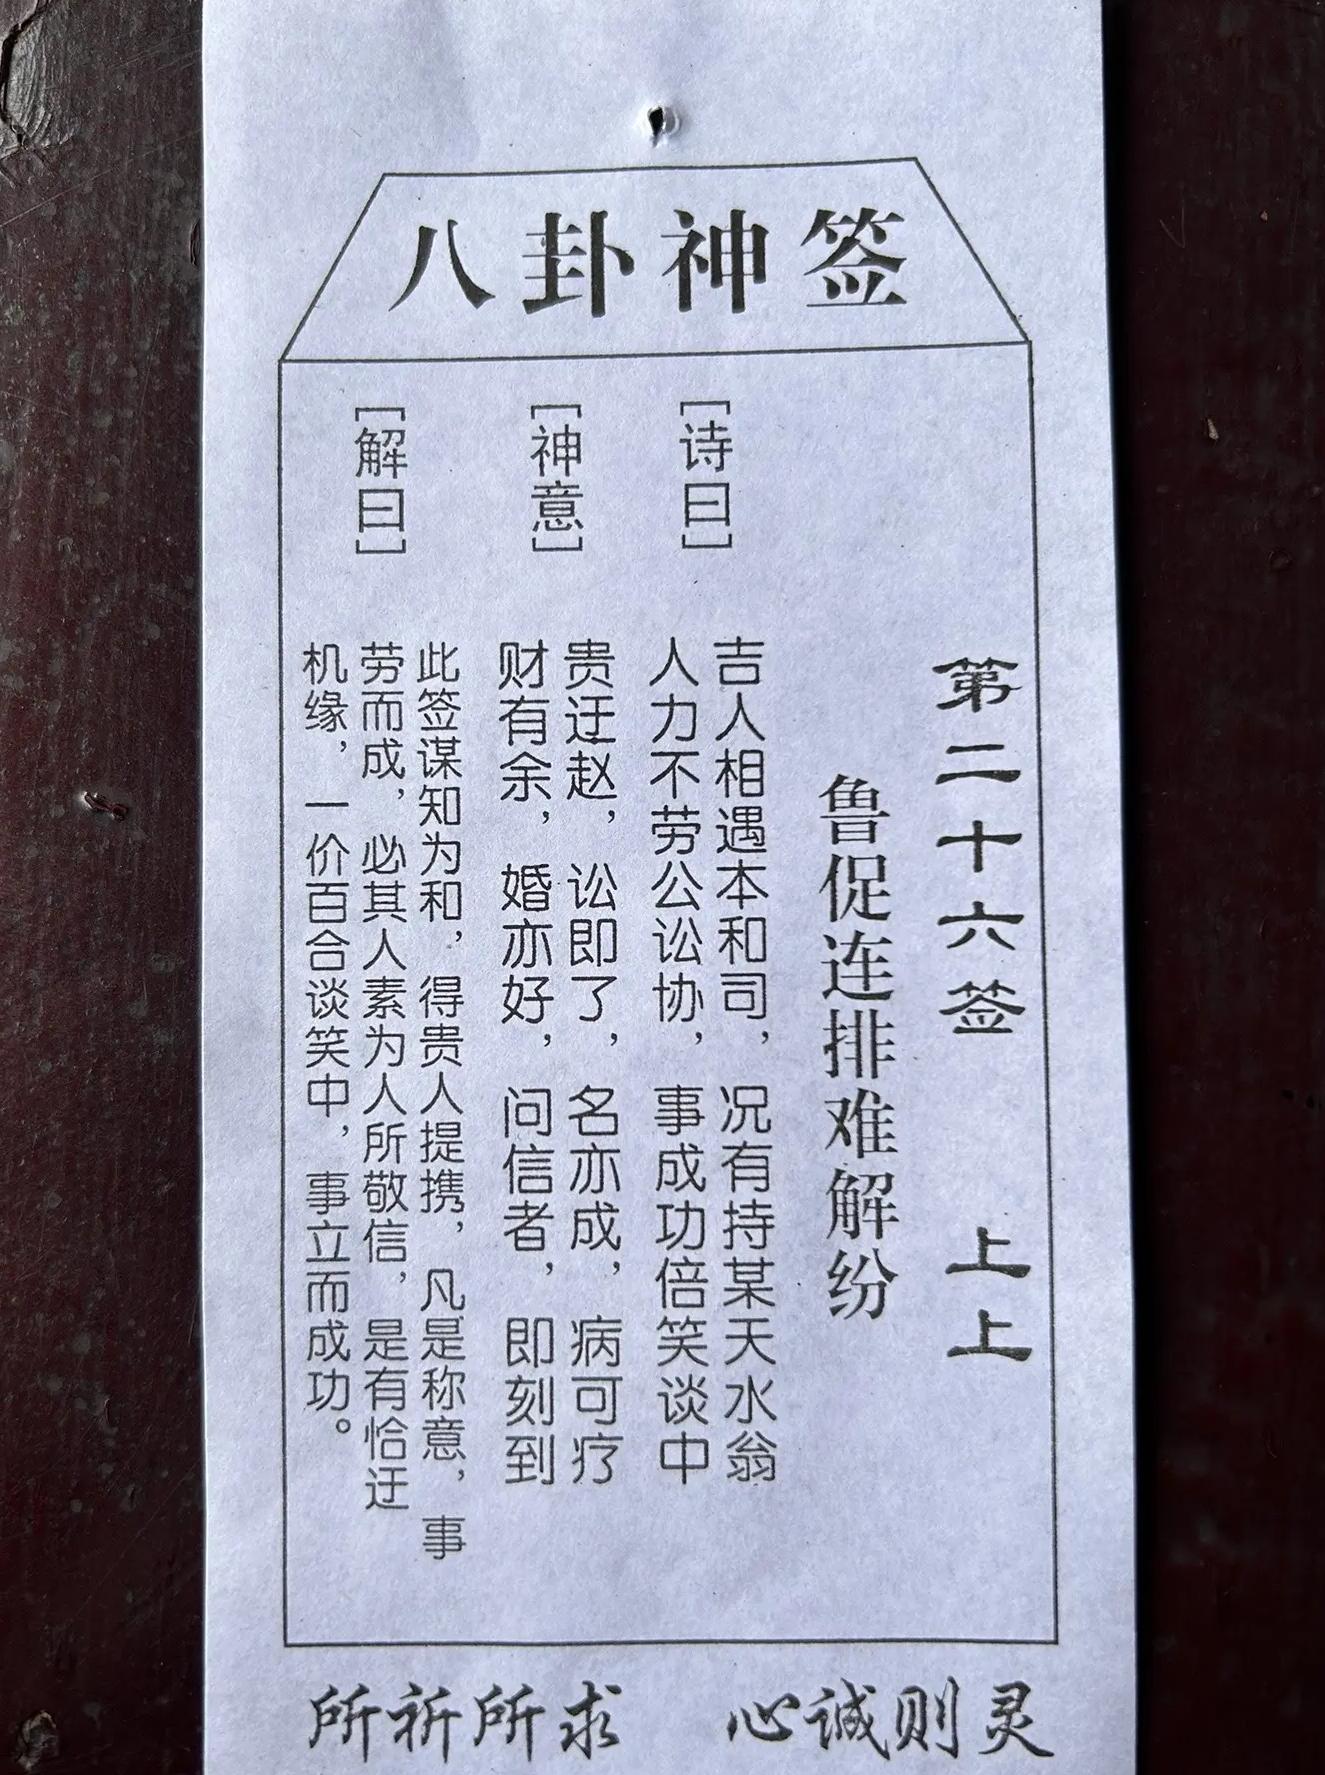 八卦神签
第二十六签 上上
鲁促连排难解纷
[诗曰]
吉人相遇本和司，况有持某天水翁
人力不劳公讼协，事成功倍笑谈中
[神意]
贵迁赵，讼即了，名亦成，病可疗
财有余，婚亦好，问信者，即刻到
[解曰]
此签谋知为和，得贵人提携，凡是称意，事
劳而成，必其人素为人所敬信，是有恰迁
机缘，一价百合谈笑中，事立而成功。
所祈所求 心诚则灵